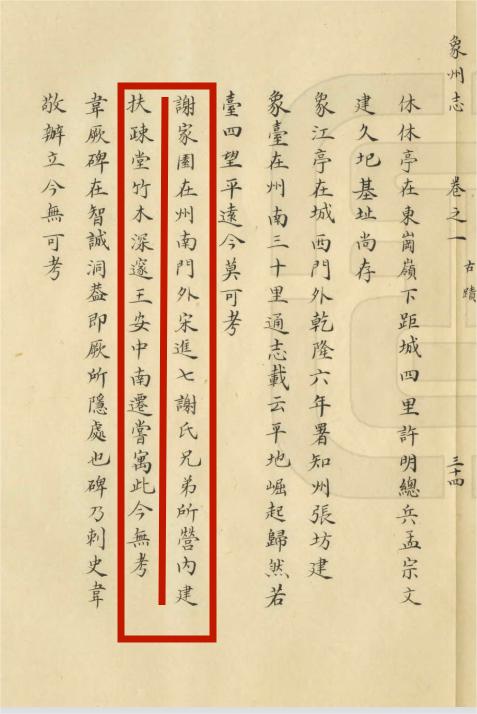 象州志 卷之一 古蹟 三十四
休休亭在東崗嶺下距城四里許明總兵孟宗文
建久圮基址尚存
象江亭在城西門外乾隆六年署知州張坊建
象臺在州南三十里通志載云平地崛起歸然若
臺四望平遠今莫可考
謝家園在州南門外宋進七謝氏兄弟所營內建
扶疎堂竹木深邃王安中南遷嘗寓此今無考
韋厥碑在智誠洞葢即厥所隱處也碑乃刺史韋
敬辦立今無可考